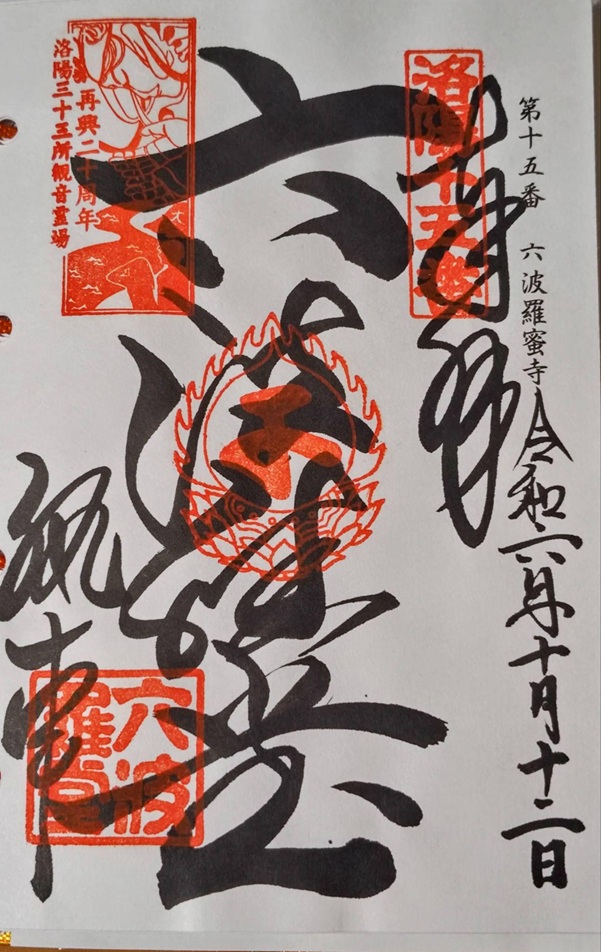 第十五番 六波羅蜜寺
令和六年十月十二日
奉拝
洛陽十五番
六波羅堂
再興二十周年
洛陽三十三所観音霊場
執事
六波
羅堂